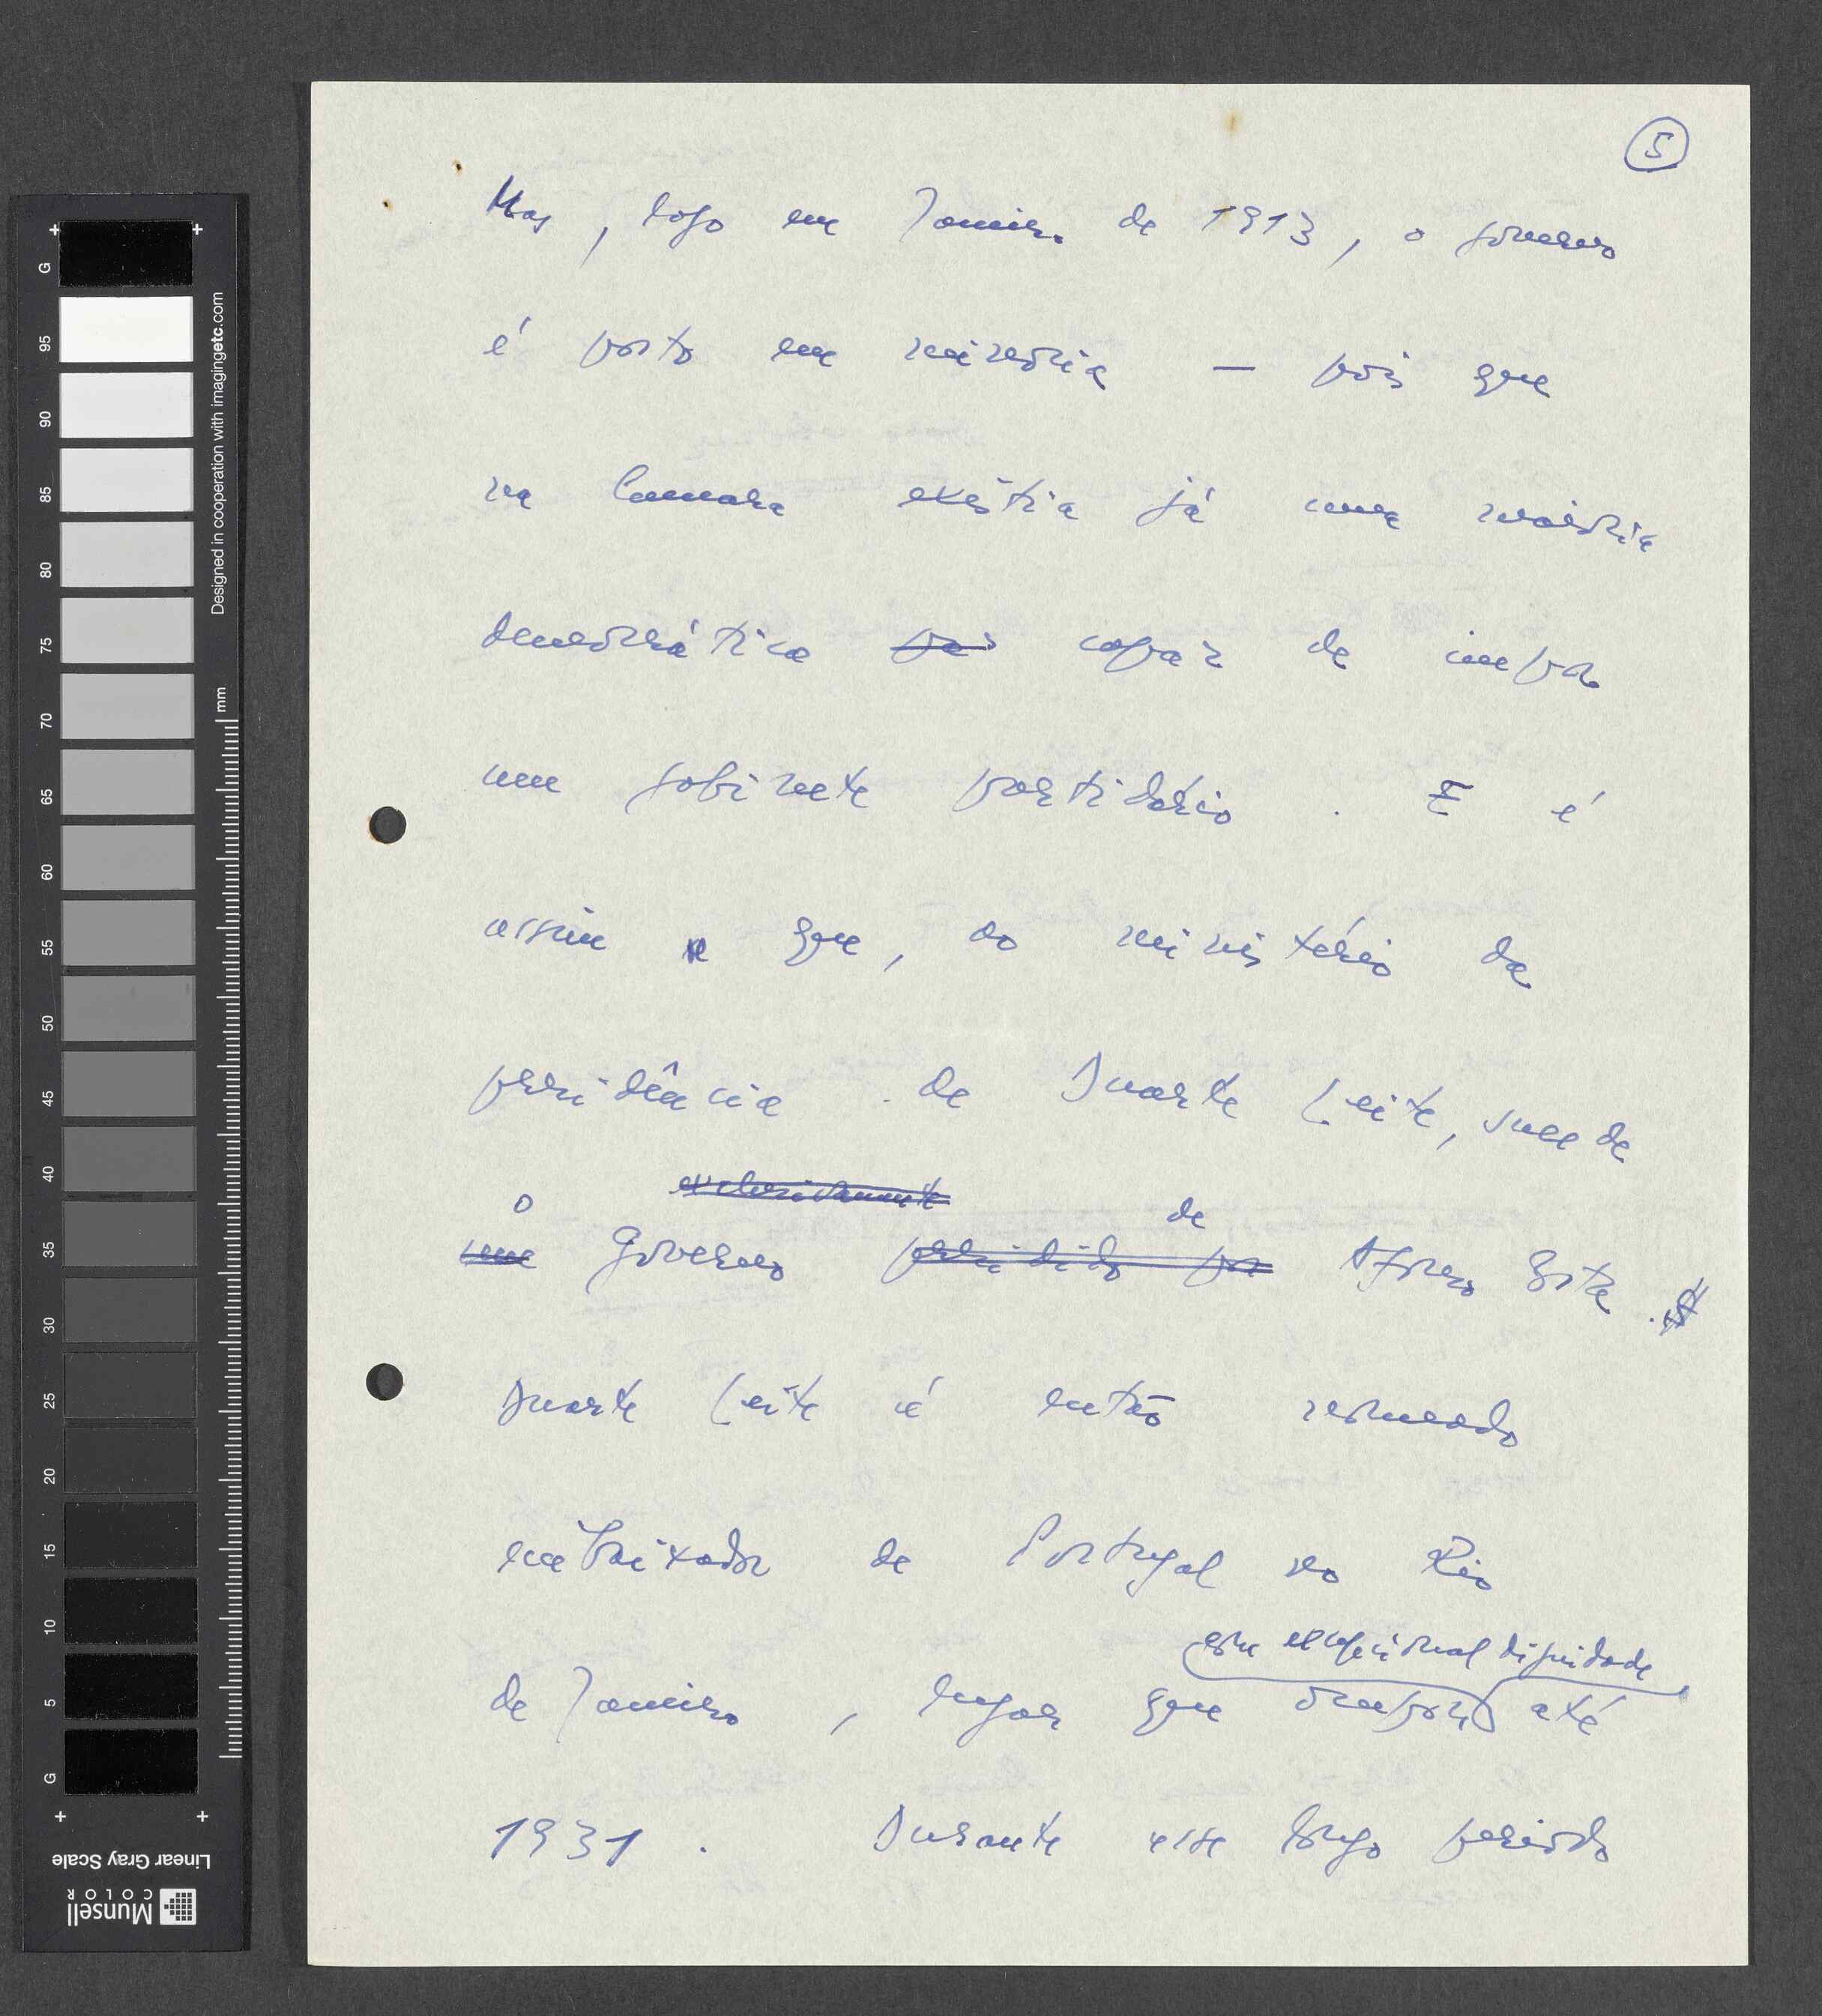 5
Mas, logo em Janeiro de 1913, o governo
é posto em minoria — pois que
na Camara existia já uma maioria
democrática capaz de impor
um gabinete partidário. E é
assim que, ao ministério da
presidência de Duarte Leite, sucede
exclusivamente
o de
um Governo presidido por Afonso Costa.
Duarte Leite é então nomeado
embaixador de Portugal no Rio
com excepcional dignidade
de Janeiro, lugar que ocupou até
1931. Durante esse longo periodo
G
95
90
85
80
75
70
65
60
55
50
45
40
35
30
25
20
15
10
5
G
mm
Designed in cooperation with imagingetc.com
Linear Gray Scale
Munsell
COLOR